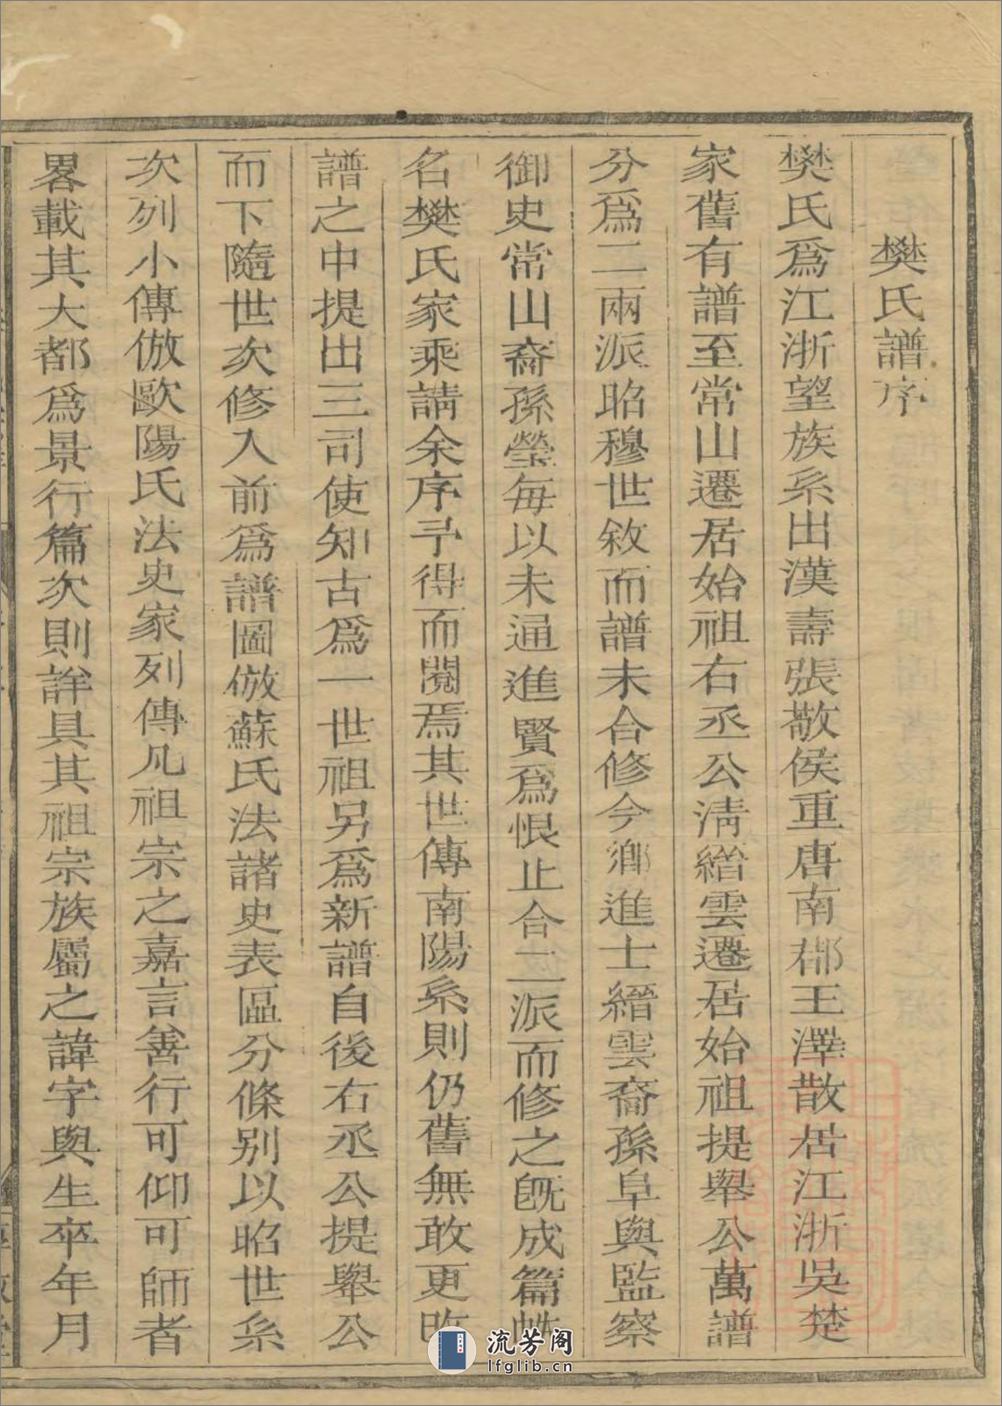 樊氏譜序
樊氏爲江浙望族系出漢壽張敬侯重唐南郡王澤散居江浙吳楚
家舊有譜至常山遷居始祖右丞公淸縉雲遷居始祖提舉公萬譜
分爲二兩派昭穆世敘而譜未合修今鄉進士縉雲裔孫阜與監察
御史常山裔孫瑩每以未通進賢爲恨止合二派而修之旣成篇帙
名樊氏家乘請余序予得而閱焉其世傳南陽系則仍舊無敢更昨
譜之中提出三司使知古爲一世祖另爲新譜自後右丞公提舉公
而下隨世次修入前爲譜圖倣蘇氏法諸史表區分條别以昭世系
次列小傳倣歐陽氏法史家列傳凡祖宗之嘉言善行可仰可師者
畧載其大都爲景行篇次則詳具其祖宗族屬之諱字與生卒年月
流芳阁
lfglib.cn